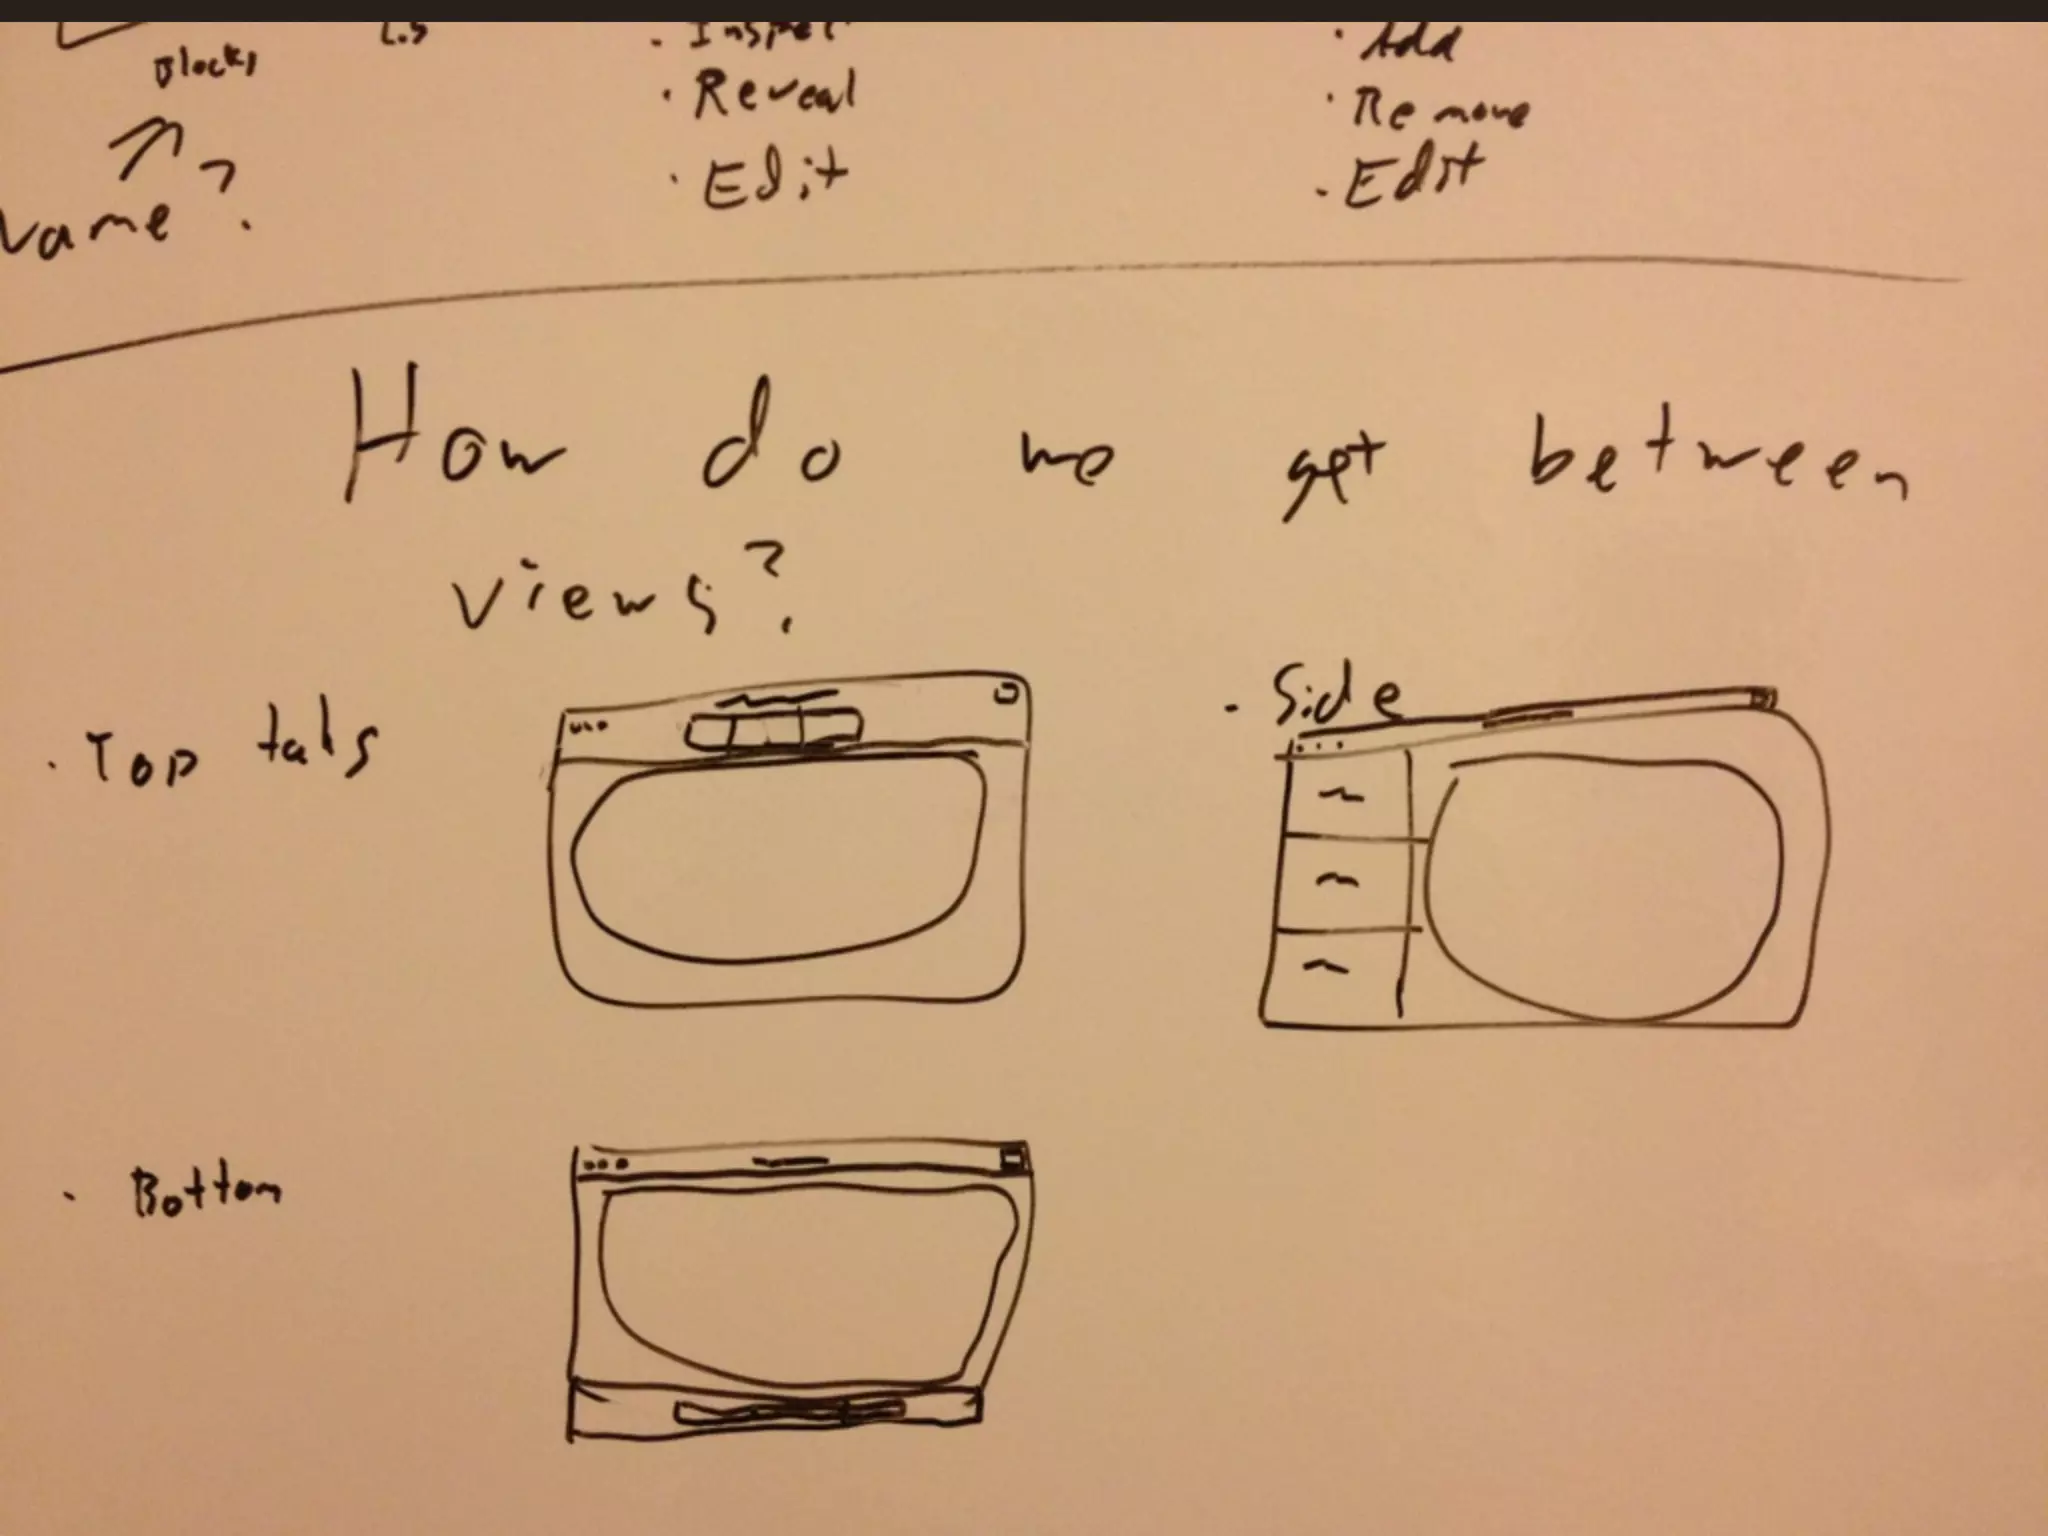 Blocks
Name?
· Inspect
· Reveal
· Edit
· Add
· Remove
· Edit
How do we get between
views?
· Top tabs
· Side
· Bottom